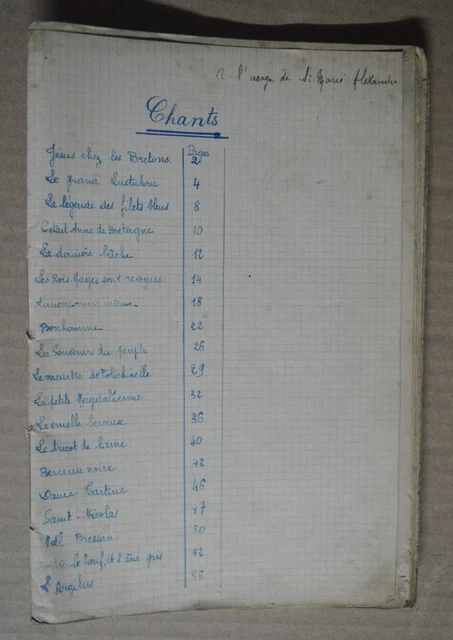 A l'usage de St Marie Alexandre
Chants
Pages
Jésus chez les Bretons. 2
Le grand Lustukru 4
La légende des filets bleus 8
C'était Anne de Bretagne 10
La dernière bûche 12
Les Rois Mages sont revenus 14
Aimons-nous mieux 18
Bonhomme 22
Les Souvenirs du peuple 26
Le meurtre de Polichinelle 29
La petite Magdaléenne 32
La cruelle berceuse 36
Le tricot de laine 40
Berceuse noire 42
Dame Tartine 46
Saint-Nicolas 47
Noël Bressan 50
Entre le bœuf et l'âne gris 52
L'Angélus 56